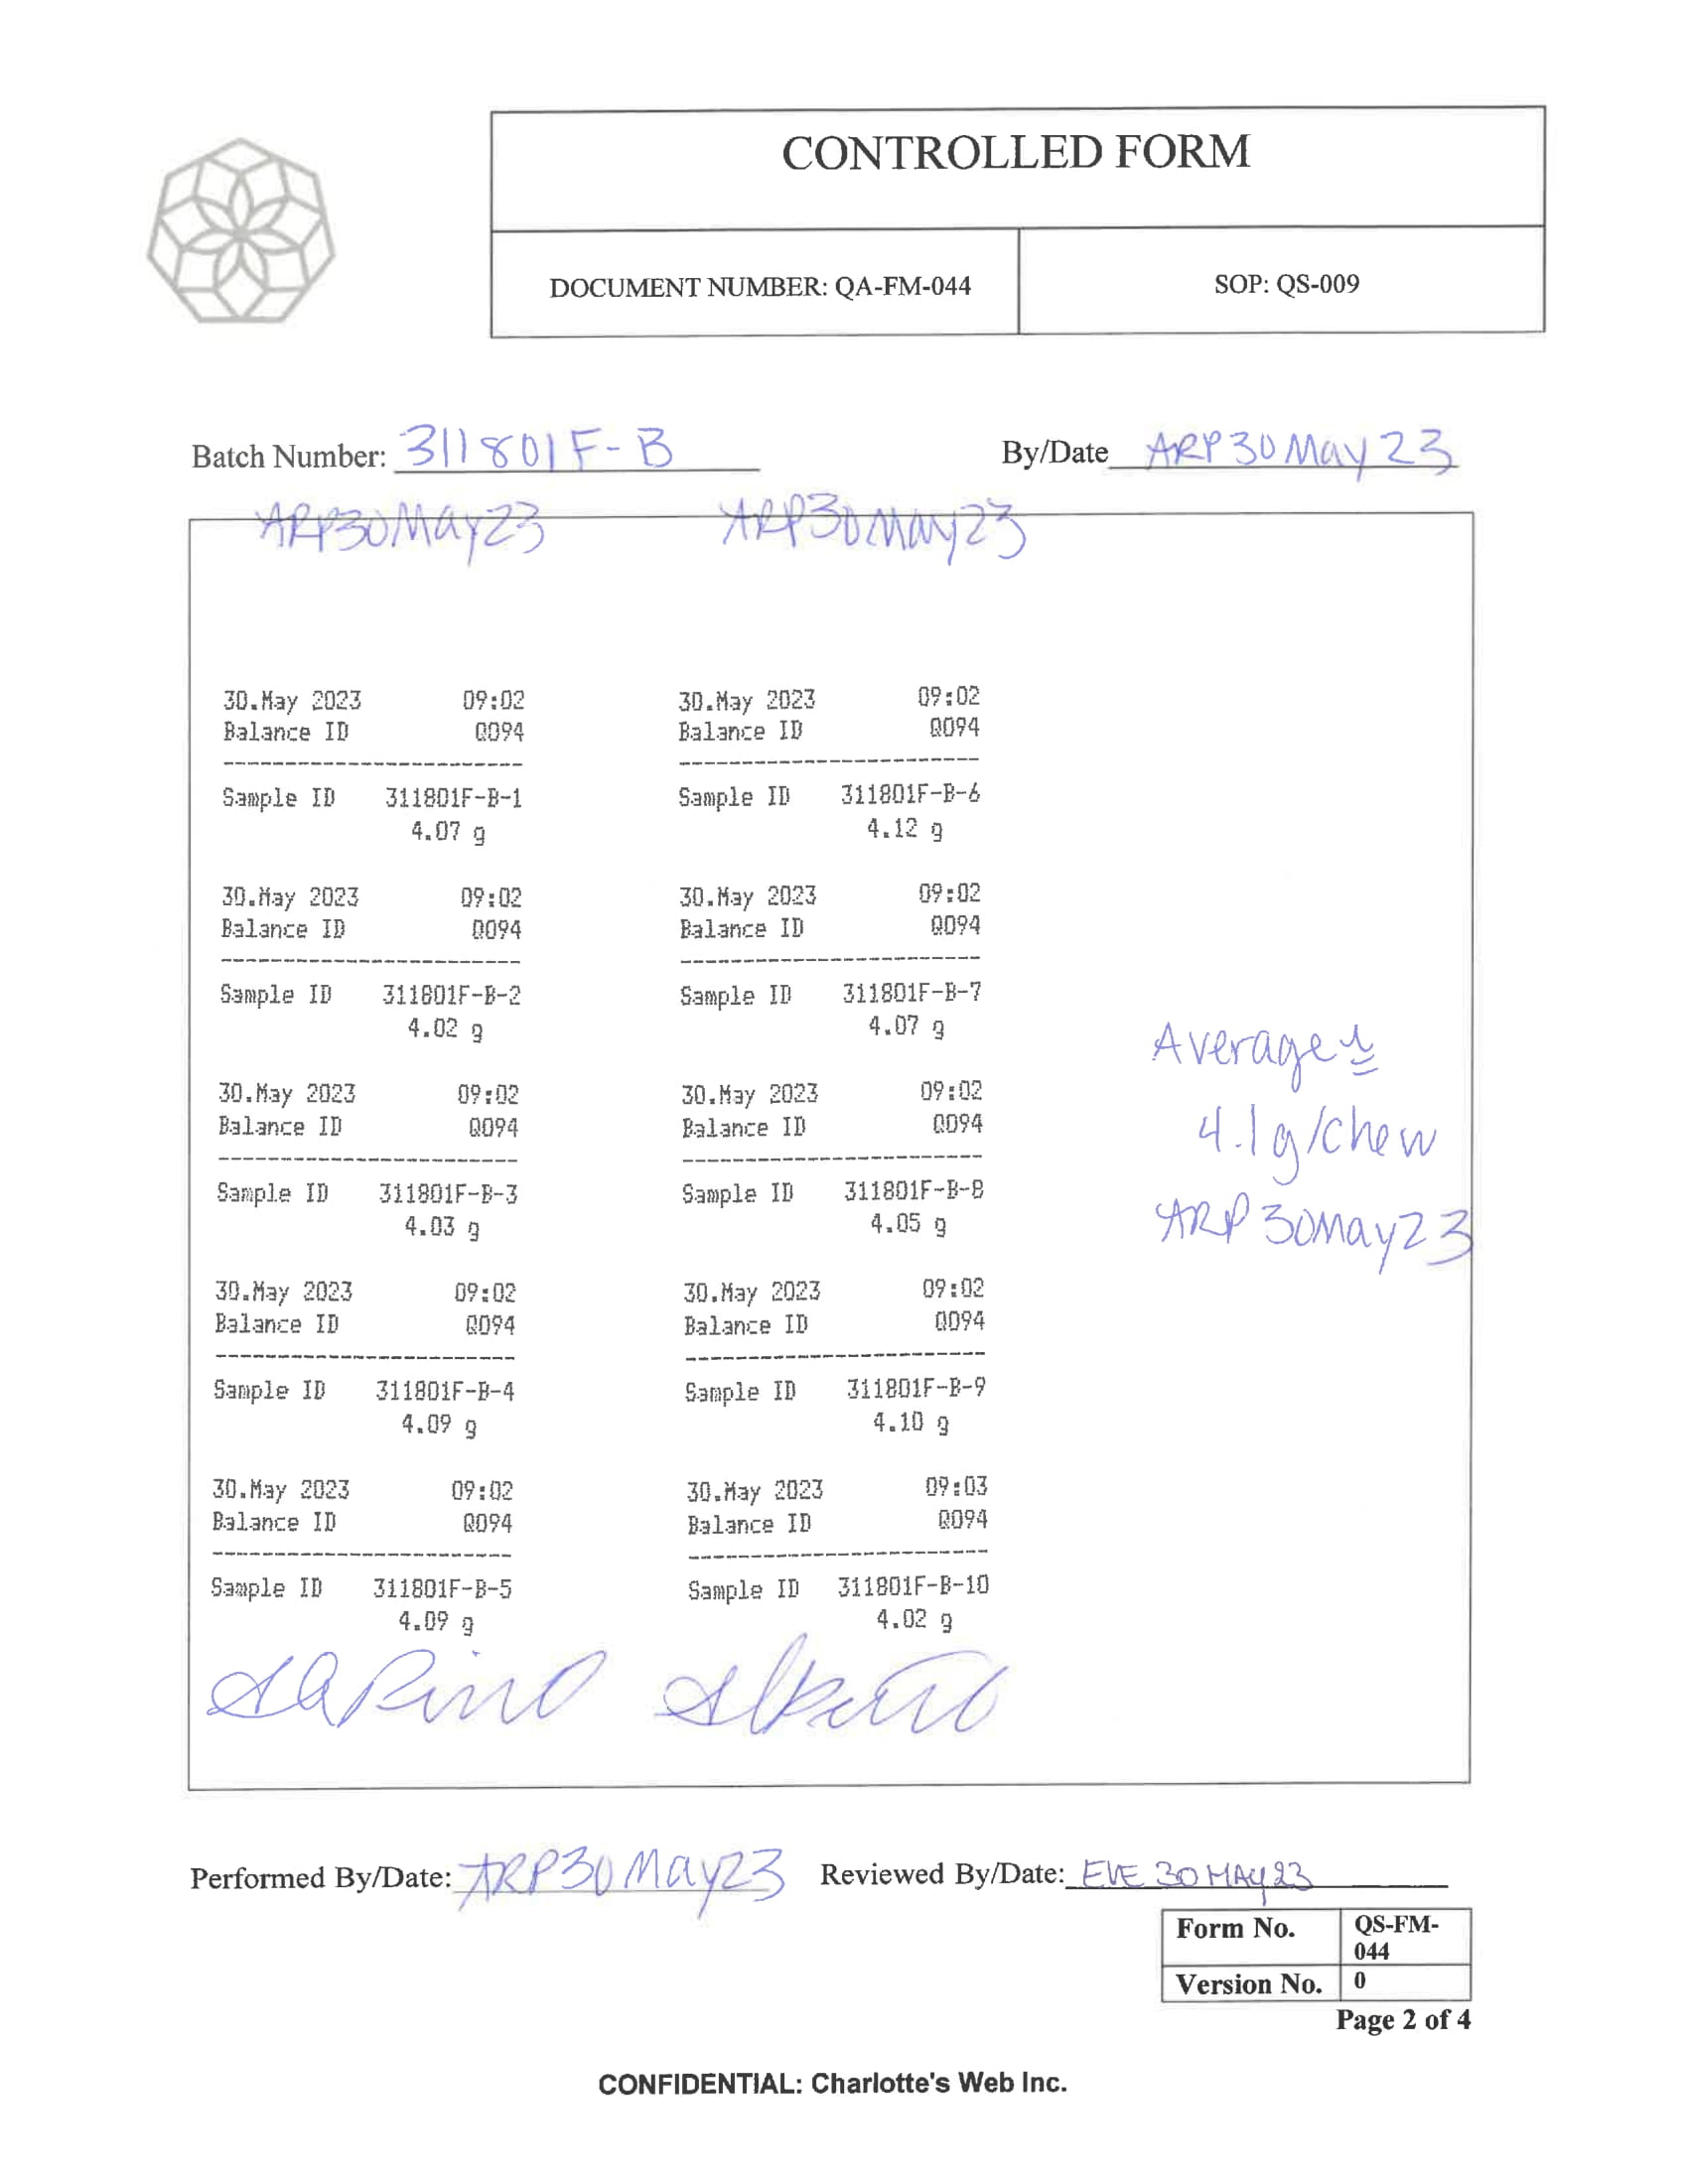 CONTROLLED FORM
DOCUMENT NUMBER: QA-FM-044
SOP: QS-009
Batch Number: 311801F-B
By/Date ARP 30 May 23
ARP30May23 ARP30May23
30.May 2023 09:02
Balance ID Q094
------------------------
Sample ID 311801F-B-1
4.07 g
30.May 2023 09:02
Balance ID Q094
------------------------
Sample ID 311801F-B-2
4.02 g
30.May 2023 09:02
Balance ID Q094
------------------------
Sample ID 311801F-B-3
4.03 g
30.May 2023 09:02
Balance ID Q094
------------------------
Sample ID 311801F-B-4
4.09 g
30.May 2023 09:02
Balance ID Q094
------------------------
Sample ID 311801F-B-5
4.09 g
30.May 2023 09:02
Balance ID Q094
------------------------
Sample ID 311801F-B-6
4.12 g
30.May 2023 09:02
Balance ID Q094
------------------------
Sample ID 311801F-B-7
4.07 g
30.May 2023 09:02
Balance ID Q094
------------------------
Sample ID 311801F-B-8
4.05 g
30.May 2023 09:02
Balance ID Q094
------------------------
Sample ID 311801F-B-9
4.10 g
30.May 2023 09:03
Balance ID Q094
------------------------
Sample ID 311801F-B-10
4.02 g
Average
4.1g/chew
ARP 30May23
Performed By/Date: ARP30May23
Reviewed By/Date: EVE 30 MAY 23
Form No. QS-FM-
044
Version No. 0
Page 2 of 4
CONFIDENTIAL: Charlotte's Web Inc.